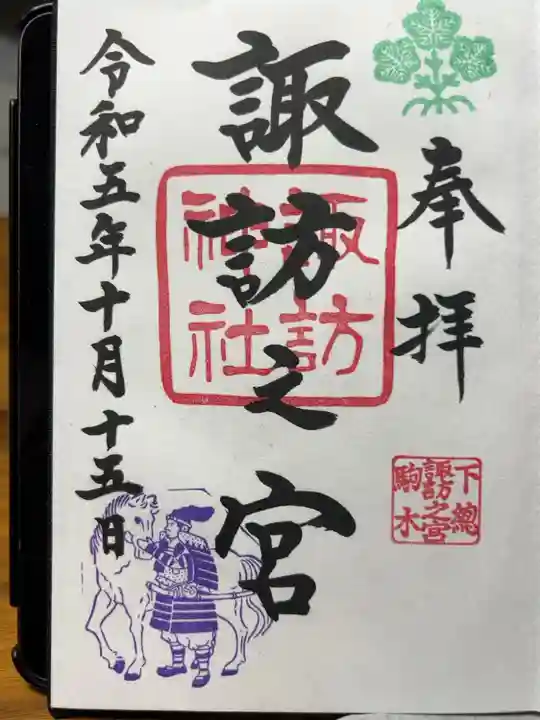 奉拝
下總
諏訪之宮
駒木
諏訪之宮
諏訪
神社
令和五年十月十五日